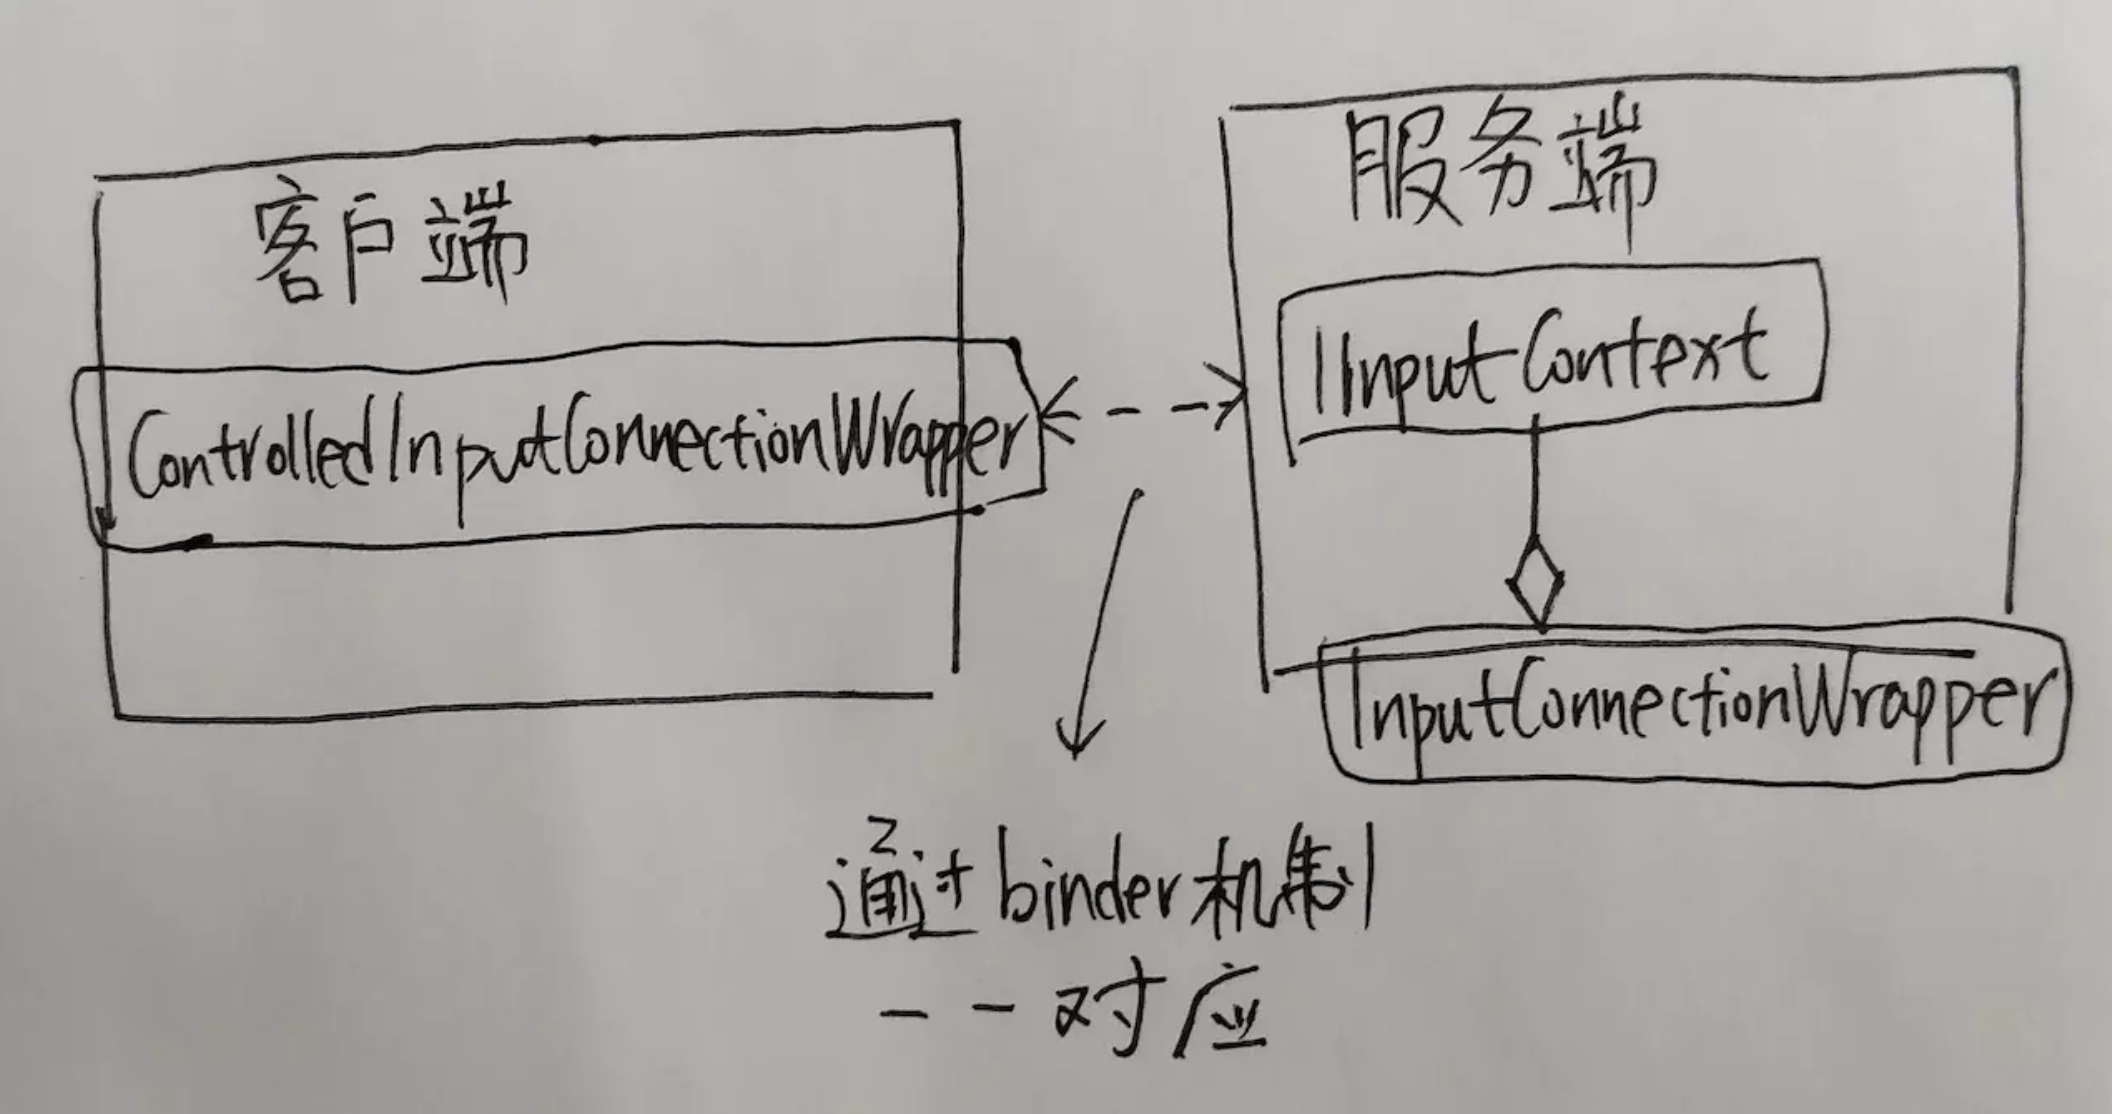 客户端
ControlledInputConnectionWrapper
服务端
IInputContext
InputConnectionWrapper
通过binder机制
一一对应